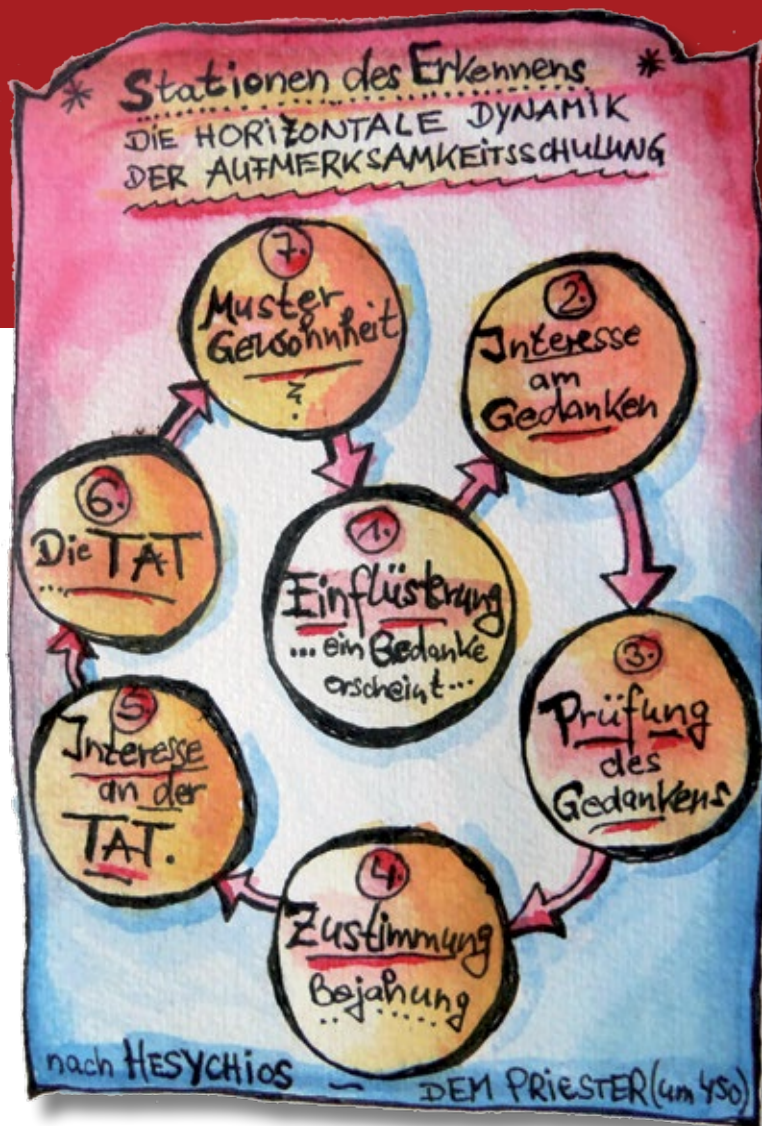 * Stationen des Erkennens *
DIE HORIZONTALE DYNAMIK
DER AUFMERKSAMKEITSSCHULUNG
1.
Einflüsterung
... ein Gedanke
erscheint...
2.
Interesse
am
Gedanken
3.
Prüfung
des
Gedankens
4.
Zustimmung
Bejahung
5
Interesse
an der
TAT.
6.
Die TAT
7.
Muster
Gewohnheit
nach HESYCHIOS – DEM PRIESTER (um 450)